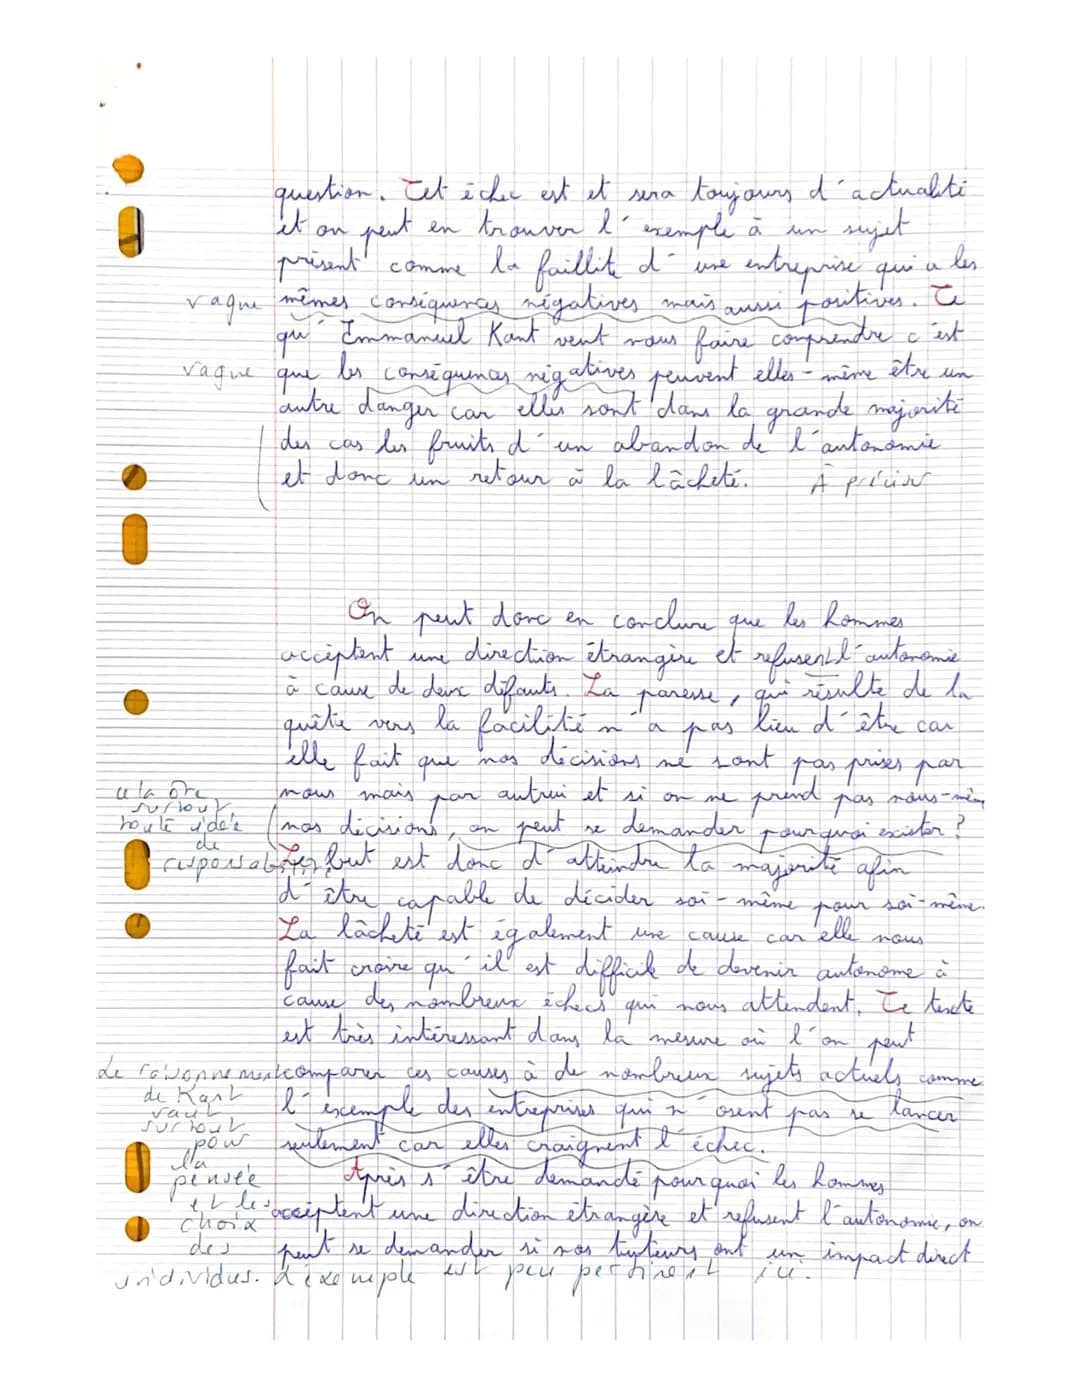 question. Cet échec est et sera toujours d'actualité
et on peut en trouver l'exemple à un sujet
présent comme la faillite d'une entreprise qui a les
vague
mêmes conséquences négatives mais aussi positives. Ce
qu'Emmanuel Kant veut nous faire comprendre c'est
vague
que les conséquences négatives peuvent elles-même être un
autre danger car elles sont dans la grande majorité
des cas les fruits d'un abandon de l'autonomie
et donc un retour à la lâcheté.
À préciser
On peut donc en conclure que les hommes
acceptent une direction étrangère et refusent l'autonomie
à cause de deux défauts. La paresse, qui résulte de la
quête vers la facilité n'a pas lieu d'être car
elle fait que nos décisions ne sont pas prises par
nous mais par autrui et si on ne prend pas nous-même
nos décisions, on peut se demander pourquoi exister ?
cela ôte
surtout
toute idée
de
responsabilité
Le but est donc d'atteindre la majorité afin
d'être capable de décider soi-même pour soi-même.
La lâcheté est également une cause car elle nous
fait croire qu'il est difficile de devenir autonome à
cause des nombreux échecs qui nous attendent. Ce texte
est très intéressant dans la mesure où l'on peut
comparer ces causes à de nombreux sujets actuels comme
l'exemple des entreprises qui n'osent pas se lancer
seulement car elles craignent l'échec.
Le raisonnement
de Kant
vaut
surtout
pour
la
pensée
et les
choix
des
individus. L'exemple est peu pertinent ici.
Après s'être demandé pourquoi les hommes
acceptent une direction étrangère et refusent l'autonomie, on
peut se demander si nos tuteurs ont un impact direct